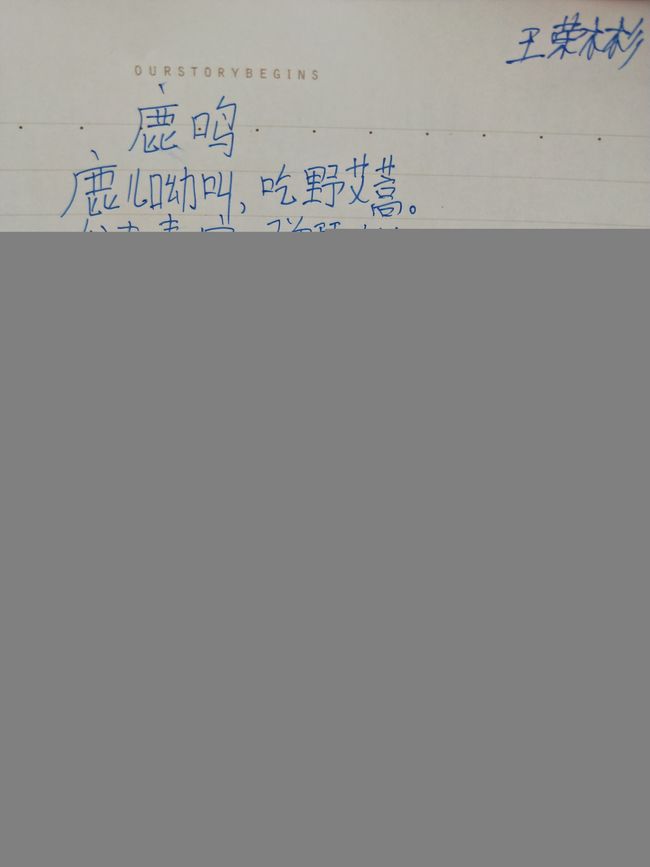 王荣彬彬
OURSTORYBEGINS
鹿鸣
鹿儿呦叫,吃野艾蒿。